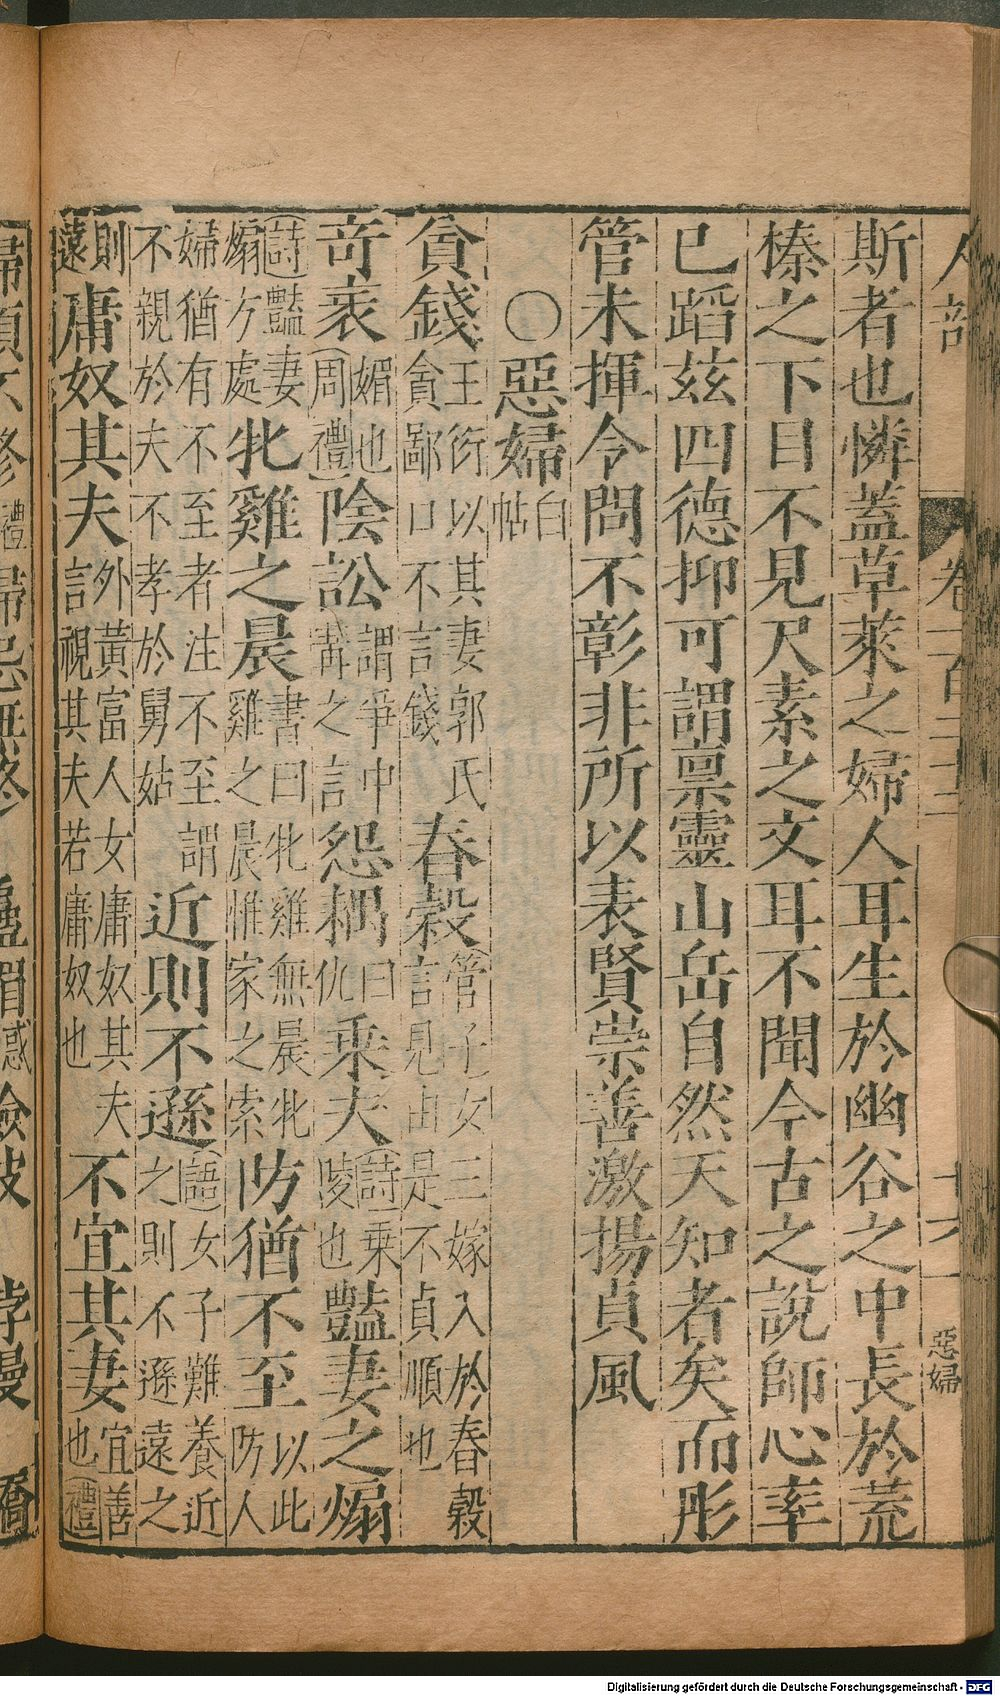 斯者也憐蓋草萊之婦人耳生於幽谷之中長於荒
榛之下目不見尺素之文耳不聞今古之說師心率
已蹈茲四德抑可謂禀靈山岳自然天知者矣而彤
管未揮令問不彰非所以表賢崇善激揚貞風
〇惡婦白帖
貪錢王衍以其妻郭氏貪鄙口不言錢春穀管子女三嫁入於春穀言見出是不貞順也
奇衺媚也周禮陰訟謂爭中冓之言怨耦曰仇乘夫詩乗陵也豔妻之煽
詩豔妻煽方處牝雞之晨書曰牝雞無晨牝雞之晨惟家之索防猶不至以此防人
婦猶有不至者注不至謂不親於夫不孝於舅姑近則不遜語女子難養近之則不遜遠之
則遠庸奴其夫外黃富人女庸奴其夫言視其夫若庸奴也不宜其妻宜善也禮
人部
卷一百
惡婦
Digitalisierung gefördert durch die Deutsche Forschungsgemeinschaft - DFG